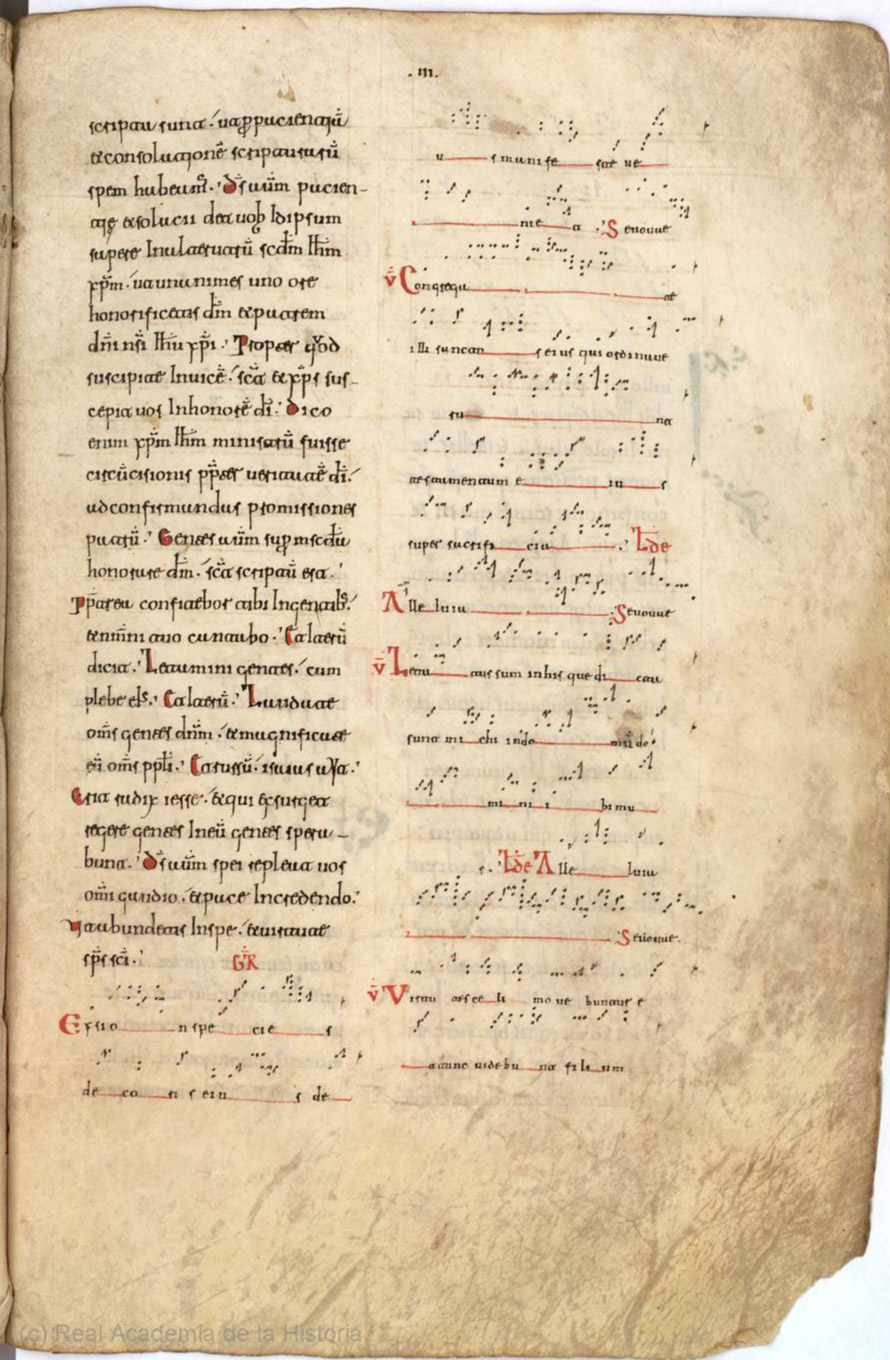 .III.
scripta sunt. ut appacientiā
et consolationē scripturarū
spem habeamꝰ. Ds autm̄ pacien-
tię et solacii det uob̄ Idipsum
sapere Inalterutrū scdm̄ Ihm̄
xp̄m. ut unanimes uno ore
honorificetis dm̄ et patrem
dn̄i nr̄i Ihū xp̄i. Propter qd̄
suscipite Inuicē. sic̄ et xp̄s sus-
cepit uos Inhonorē dī. Dico
enim xp̄m Ihm̄ ministrū fuisse
circūcisionis pp̄ter ueritatē dī.
ad confirmandas promissiones
patrū. Gentes autm̄ sup̄ mscdīa
honorare dm̄. sic̄ scriptū est.
Pp̄terea confitebor tibi Ingentib.
et nom̄ni tuo cantabo. Et alterū
dicit. Letamini gentes. cum
plebe eiꝰ. Et alterū. Laudate
om̄s gentes dnm̄. et magnificate
eū om̄s pp̄li. Et rursū. isaias ait.
Erit radix iesse. et qui exsurget
regere gentes Ineū gentes spera-
bunt. Ds autm̄ spei repleat uos
om̄i gaudio. et pace Incredendo.
ut abundetis Inspe. et uirtute
sp̄s sc̄i. GR
Ex sio n spe cie s
de co ri s eiu s de
u s manife ste ue
nie t. Seuouae
V̄ Congrega te
illi sanctos eius qui ordinaue
ru nt
testamentum e iu s
super sacrifi cia. Tde
Alle luia Seuouae
V̄ Leta tus sum inhis que di cta
sunt mi chi indo mū do
mi ni i bi mu
s. Tde Alle luia
Seuouae.
V̄ Virtu tes ce li mo ue buntur e
t tunc uidebu nt fi li um
(c) Real Academia de la Historia